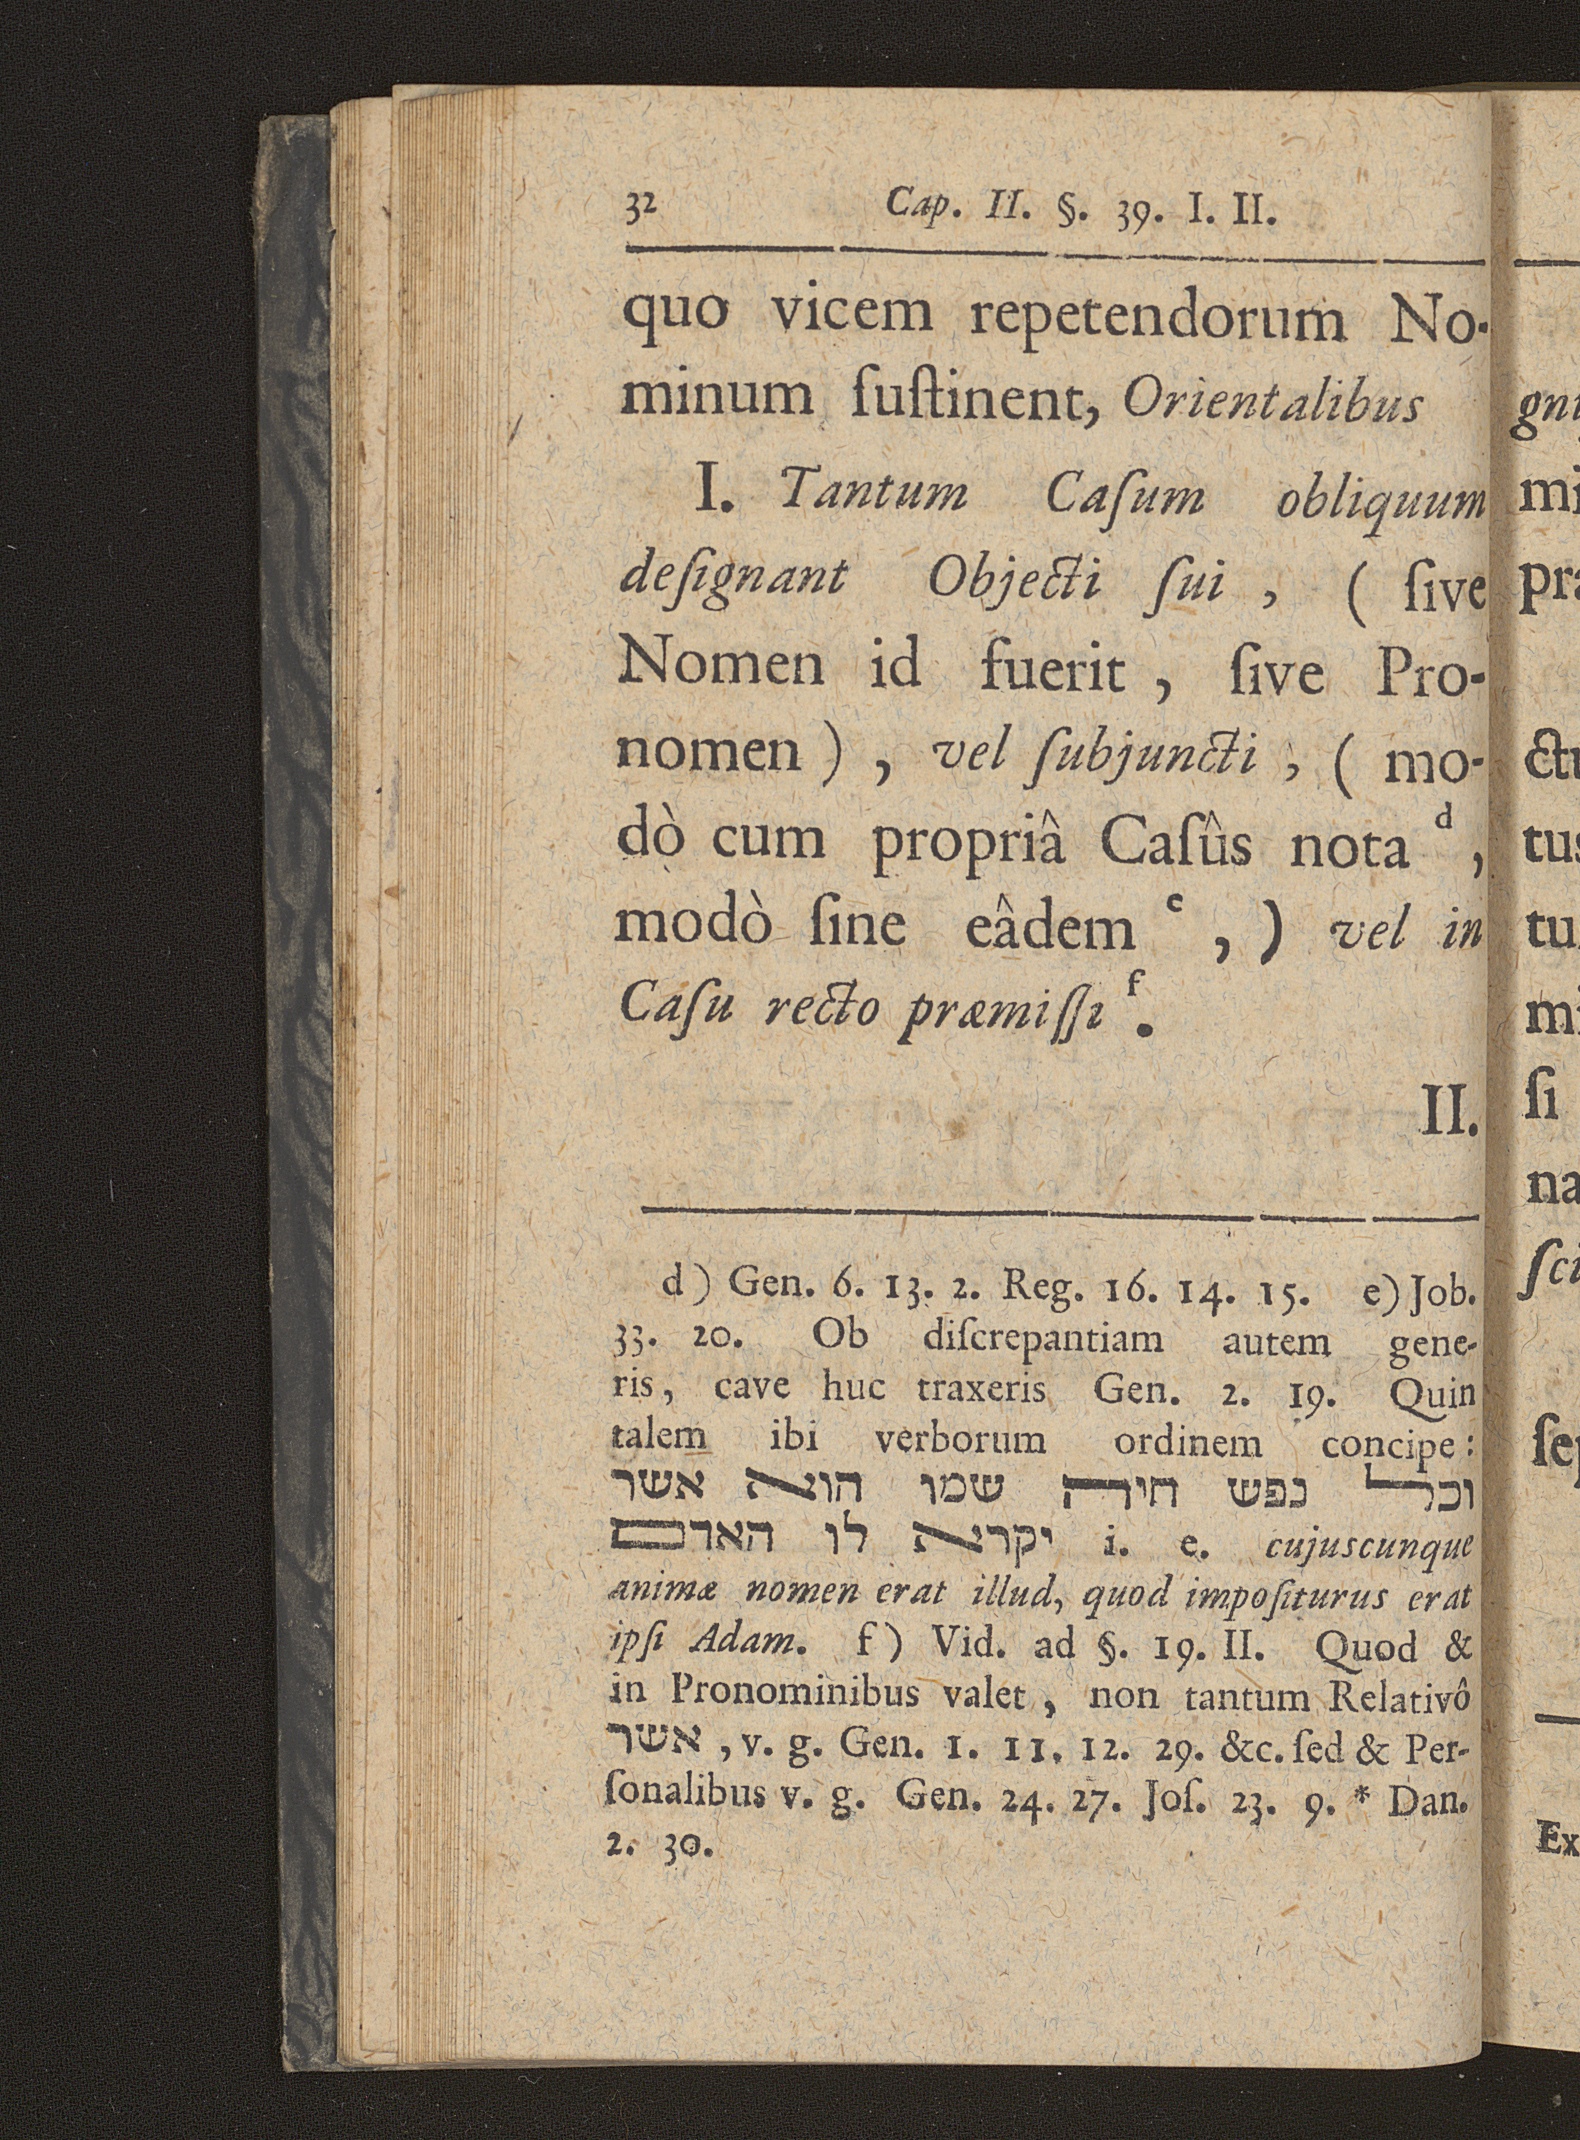 32 Cap. II. §. 39. I. II.
quo vicem repetendorum No-
minum ſuſtinent, Orientalibus
I. Tantum Caſum obliquum
deſignant Objecti ſui , ( ſive
Nomen id fuerit , ſive Pro-
nomen ) , vel ſubjuncti , ( mo-
dò cum propriâ Caſûs nota d ,
modò ſine eâdem e , ) vel in
Caſu recto præmiſſi f .
II.
d ) Gen. 6. 13. 2. Reg. 16. 14. 15. e) Job.
33. 20. Ob diſcrepantiam autem gene-
ris, cave huc traxeris Gen. 2. 19. Quin
talem ibi verborum ordinem concipe:
וכל נפש חיה שמו הוא אשר
יקרא לו האדם i. e. cujuscunque
animæ nomen erat illud, quod impoſiturus erat
ipſi Adam. f ) Vid. ad §. 19. II. Quod &
in Pronominibus valet , non tantum Relativô
אשר , v. g. Gen. 1. 11. 12. 29. &c. ſed & Per-
ſonalibus v. g. Gen. 24. 27. Joſ. 23. 9. * Dan.
2. 30.